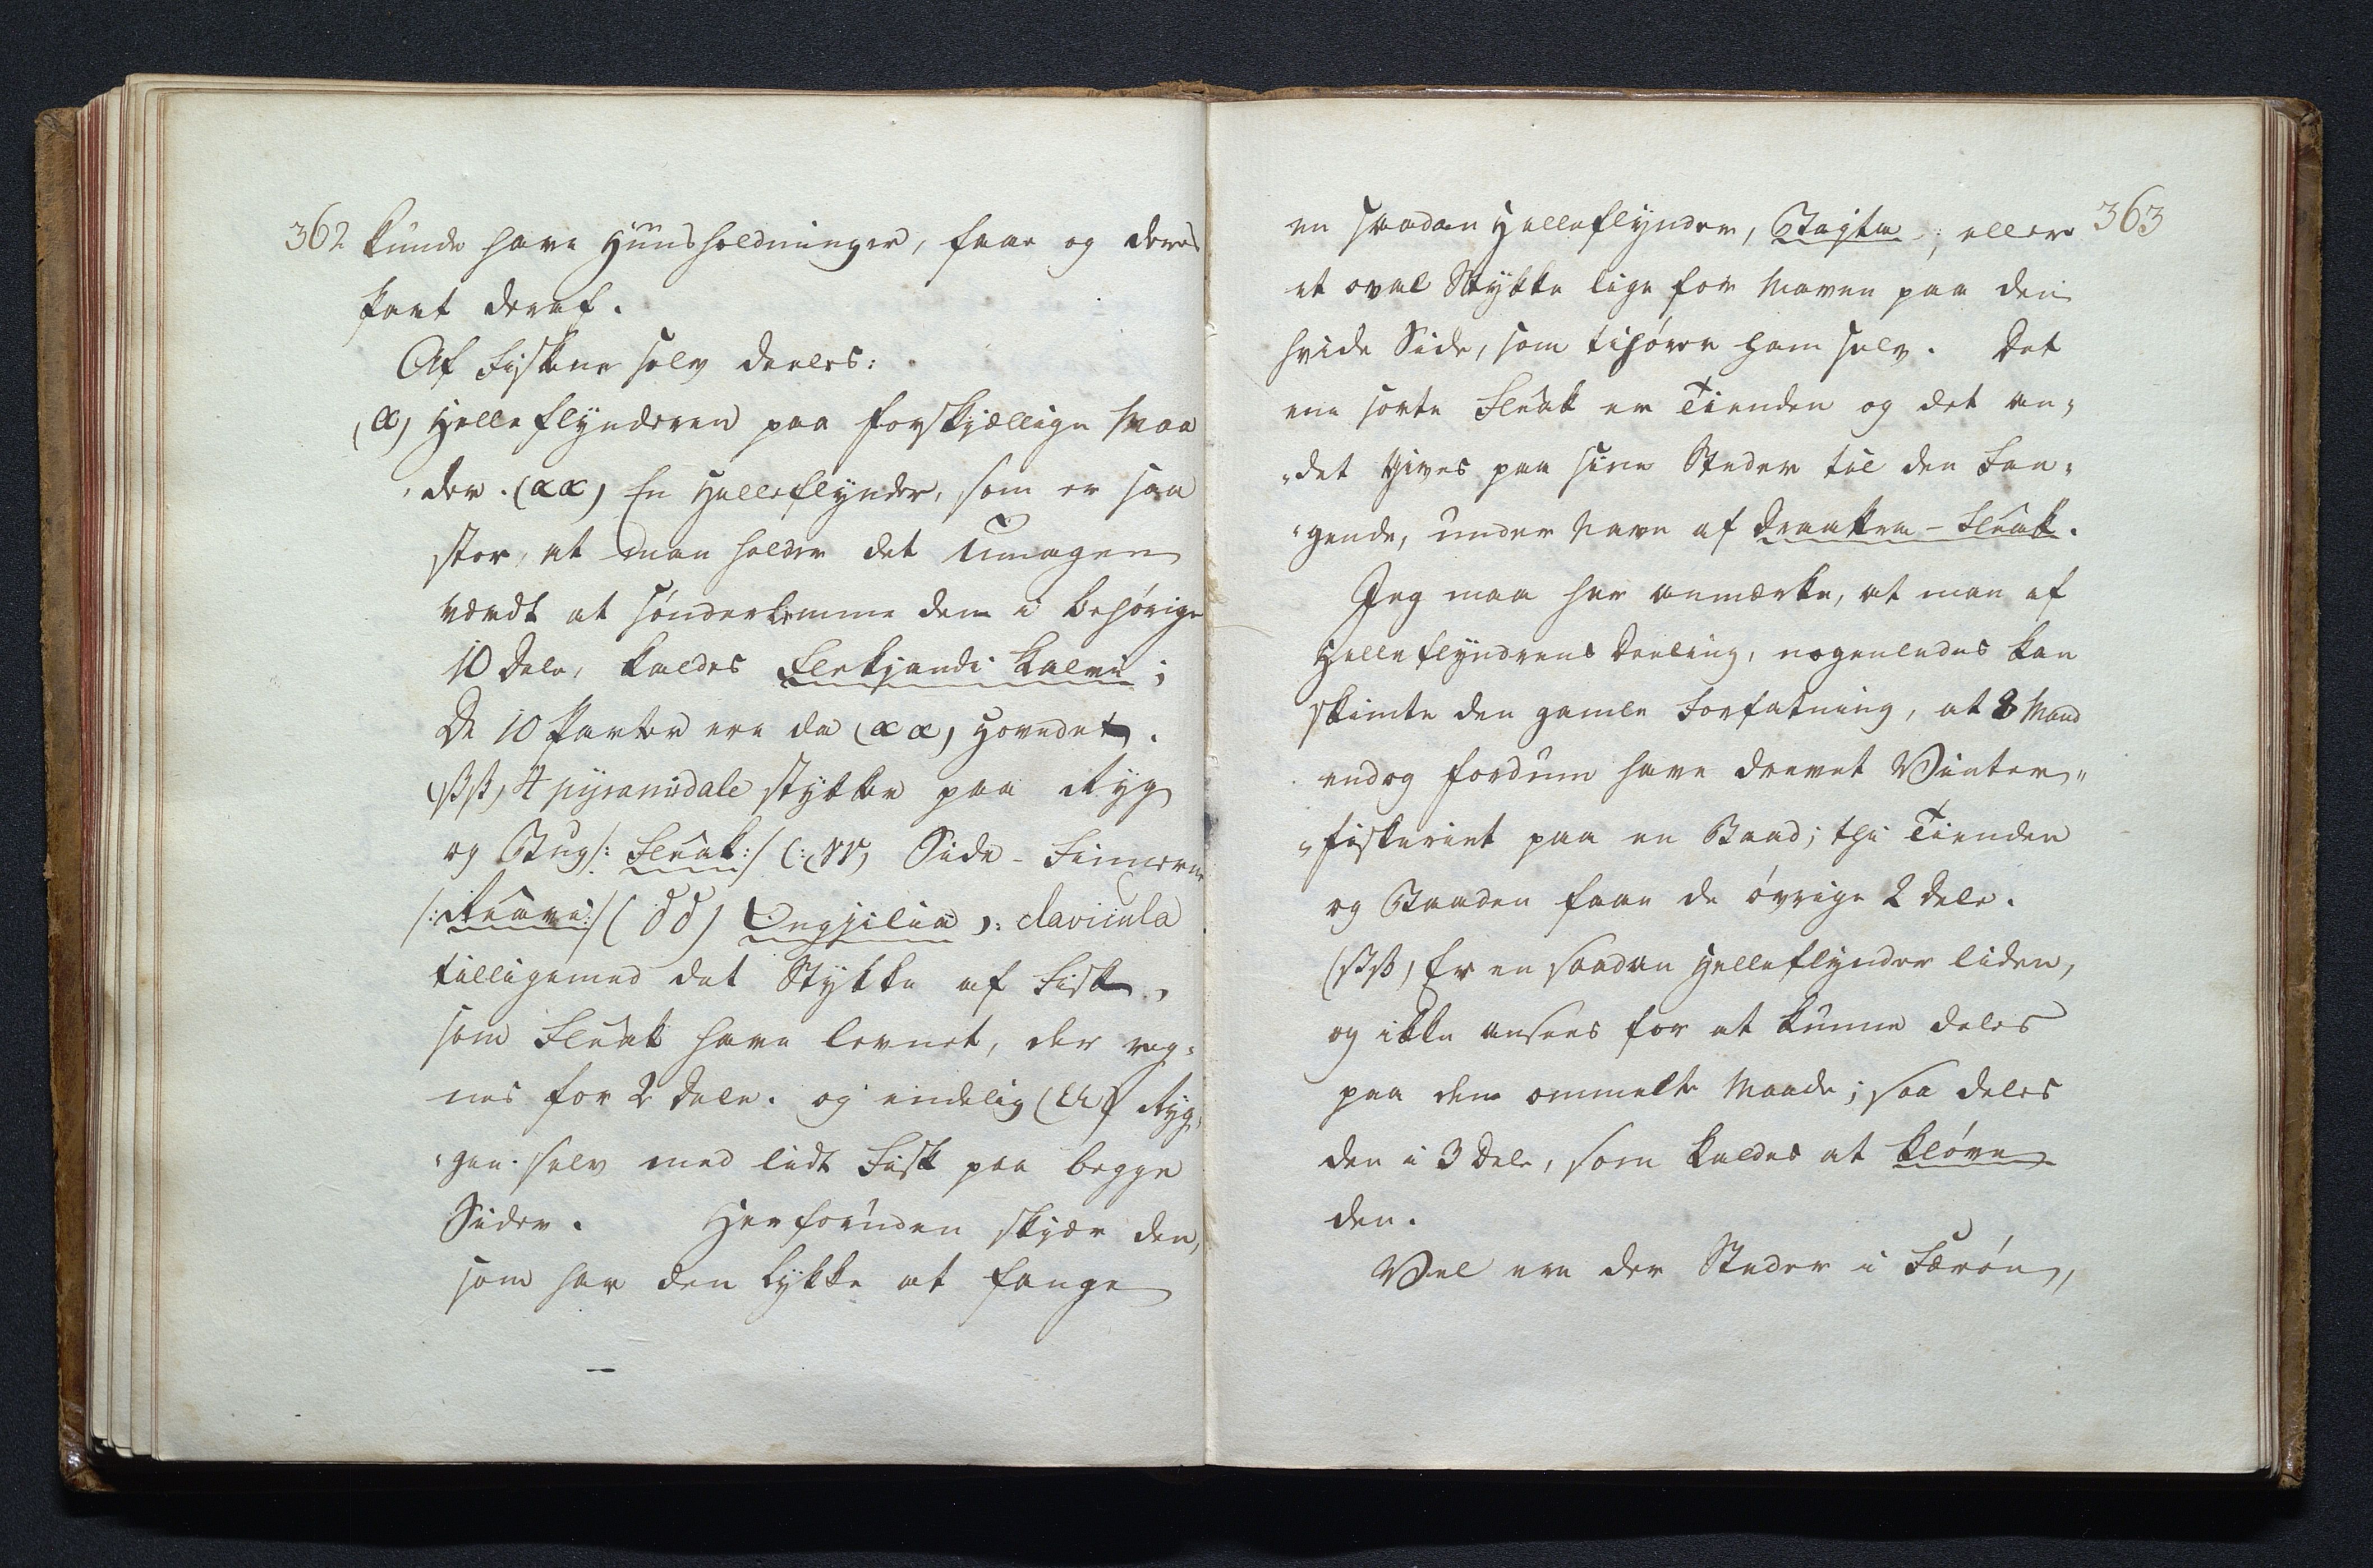 362 kunde have Huusholdninger, faae og deres
Part deraf.
Af Fiskene selv deeles:
(α) Helleflynderen paa forskjællige Maa
der. (αα) En Helleflynder, som er saa
stor, at man holder det Umagen
værdt at sønderlemme den i behørige
10 Dele, kaldes Flekjandi Kalvi;
De 10 Parter ere da (αα) Hovedet.
(ββ) 4 pyramidale stykker paa Ryg
og Bug /: Fleak :/ (: γγ) Side-Finnerne
/: Reavi :/ (δδ) Ongjilin ɔ: clavicula
tilligemed det Stykke af Fisk,
som Fleak have levnet, der reg=
nes for 2 Dele. og endelig (εε) Ryg=
"gen selv med lidt Fisk paa begge
Sider. Herforuden skjær den,
som har den Lykke at fange
en saadan Helleflynder, Bagta; eller 363
et oval Stykke lige for Maven paa den
hvide Side, som tilhører ham selv. Det
ene sorte Fleak er Tienden og det an=
"det gives paa sine Steder til den Fan=
"gende, under Navn af Draakra-Fleak.
Jeg maa her anmærke, at man af
Helleflyndrens Deeling, nogenledes kan
skimte den gamle Forfatning, at 8 Mand
endog fordum have drevet Vinter="
"fiskeriet paa en Baad; thi Tienden
og Baaden faae de øvrige 2 Dele.
(ββ) Er en saadan Helleflynder liden,
og ikke ansees for at kunne deles
paa den ommelte Maade; saa deles
den i 3 Dele, som kaldes at kløve
den.
Vel ere der Steder i Færøe,